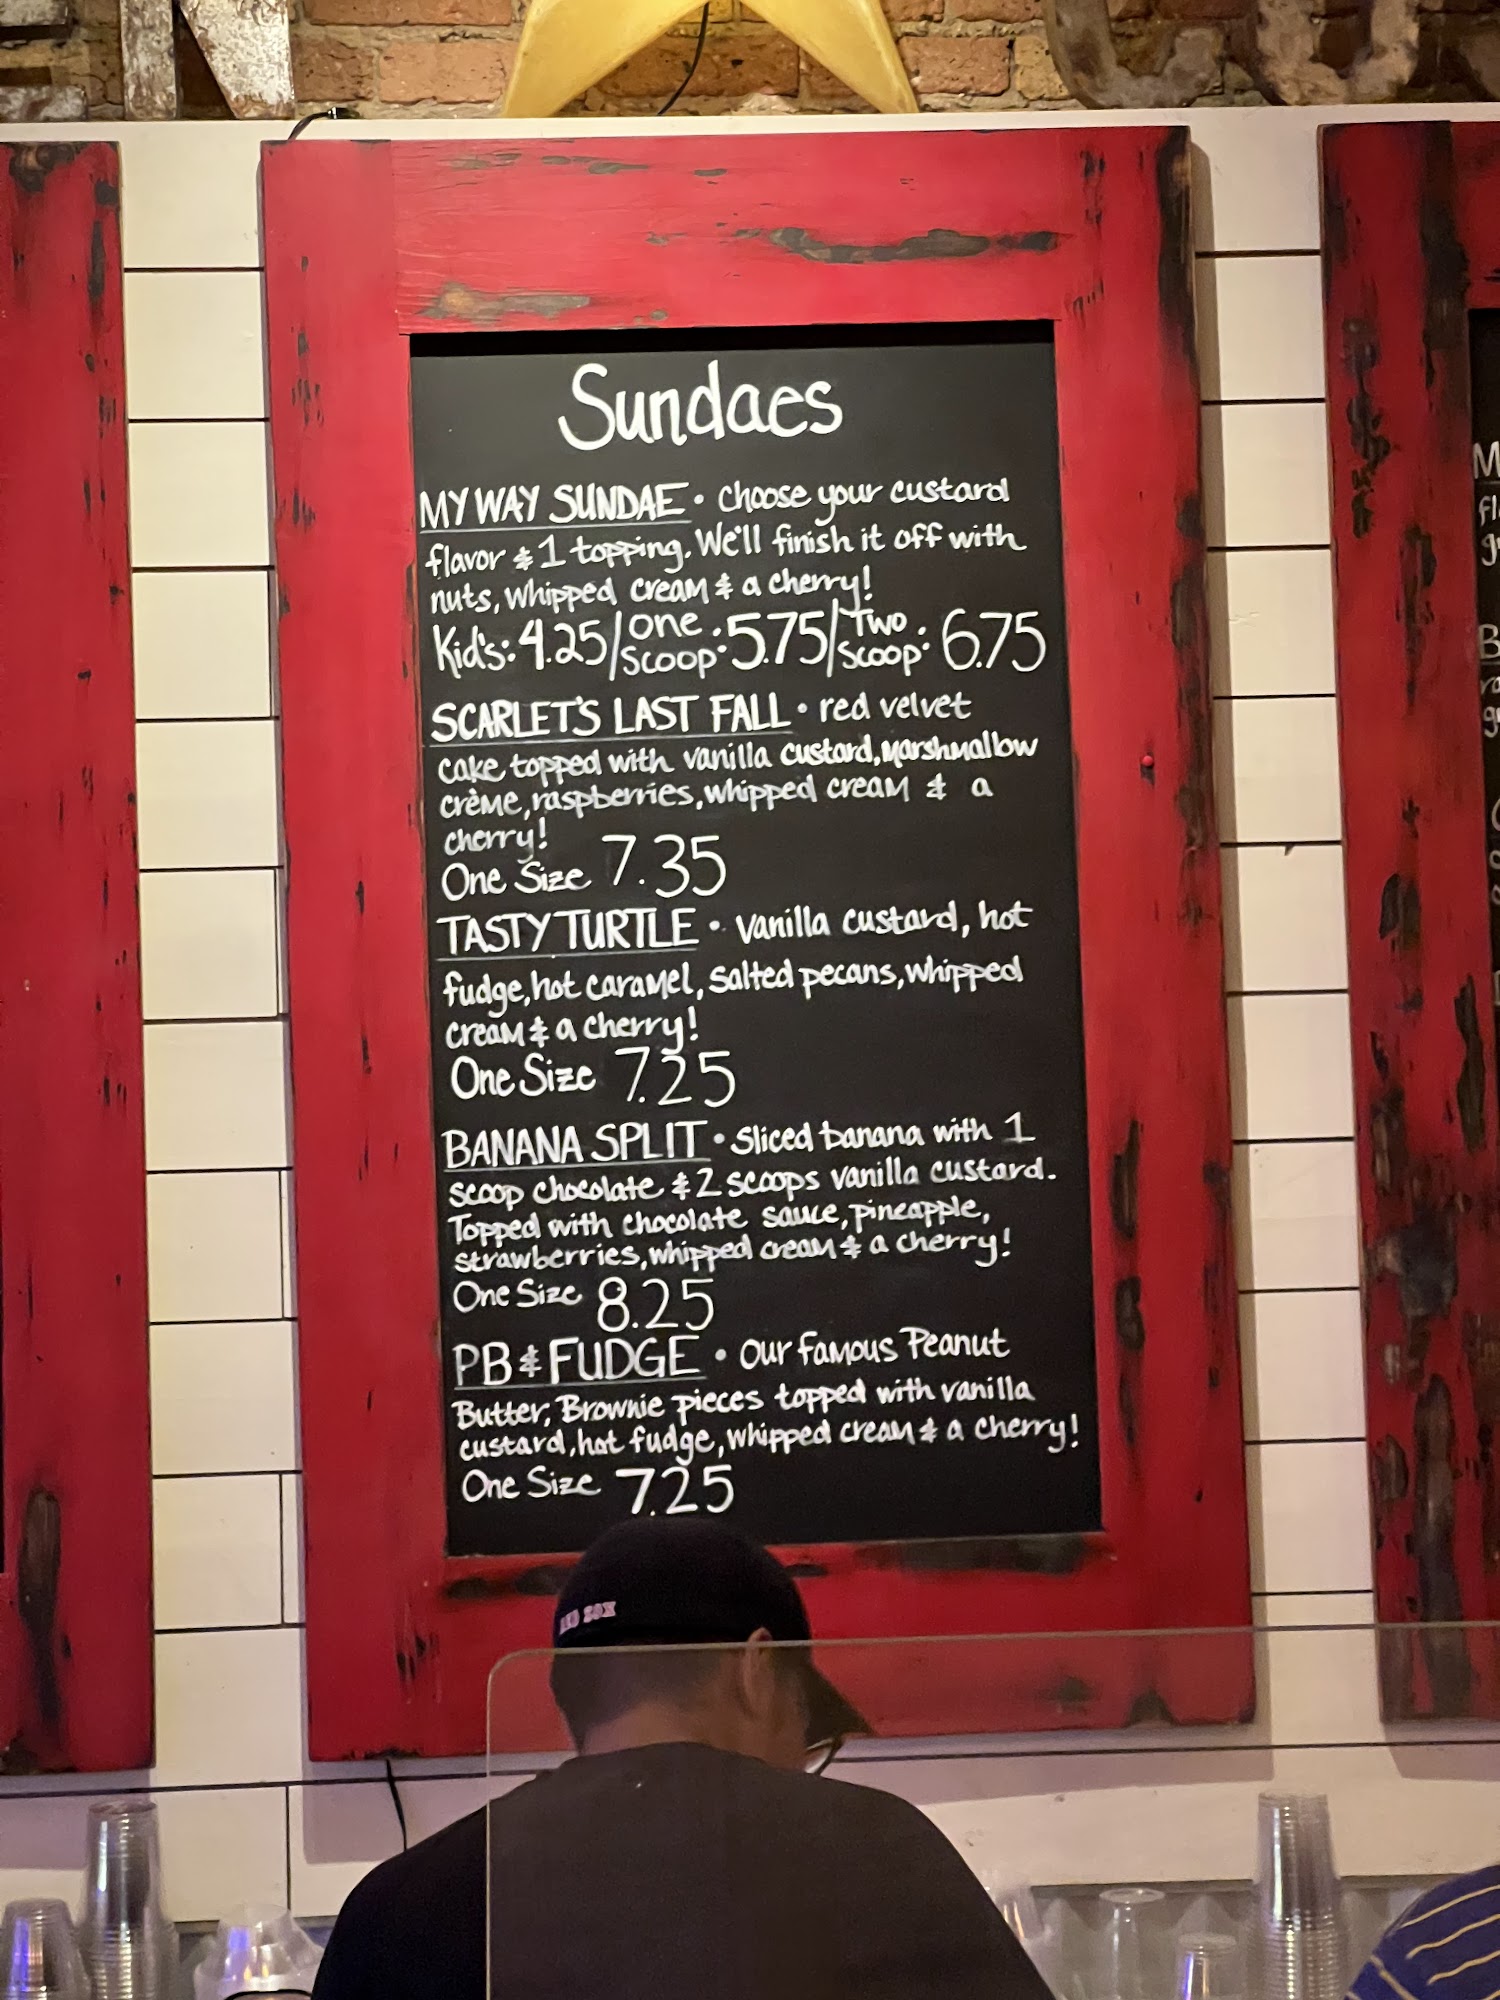 Sundaes
MY WAY SUNDAE • choose your custard
flavor & 1 topping. We'll finish it off with
nuts, whipped cream & a cherry!
Kid's: 4.25/one scoop: 5.75/Two scoop: 6.75
SCARLET'S LAST FALL • red velvet
cake topped with vanilla custard, marshmallow
crème, raspberries, whipped cream & a
cherry!
One Size 7.35
TASTY TURTLE • vanilla custard, hot
fudge, hot caramel, salted pecans, whipped
cream & a cherry!
One Size 7.25
BANANA SPLIT • sliced banana with 1
scoop chocolate & 2 scoops vanilla custard.
Topped with chocolate sauce, pineapple,
strawberries, whipped cream & a cherry!
One Size 8.25
PB & FUDGE • Our famous Peanut
Butter, Brownie pieces topped with vanilla
custard, hot fudge, whipped cream & a cherry!
One Size 7.25
RED SOX